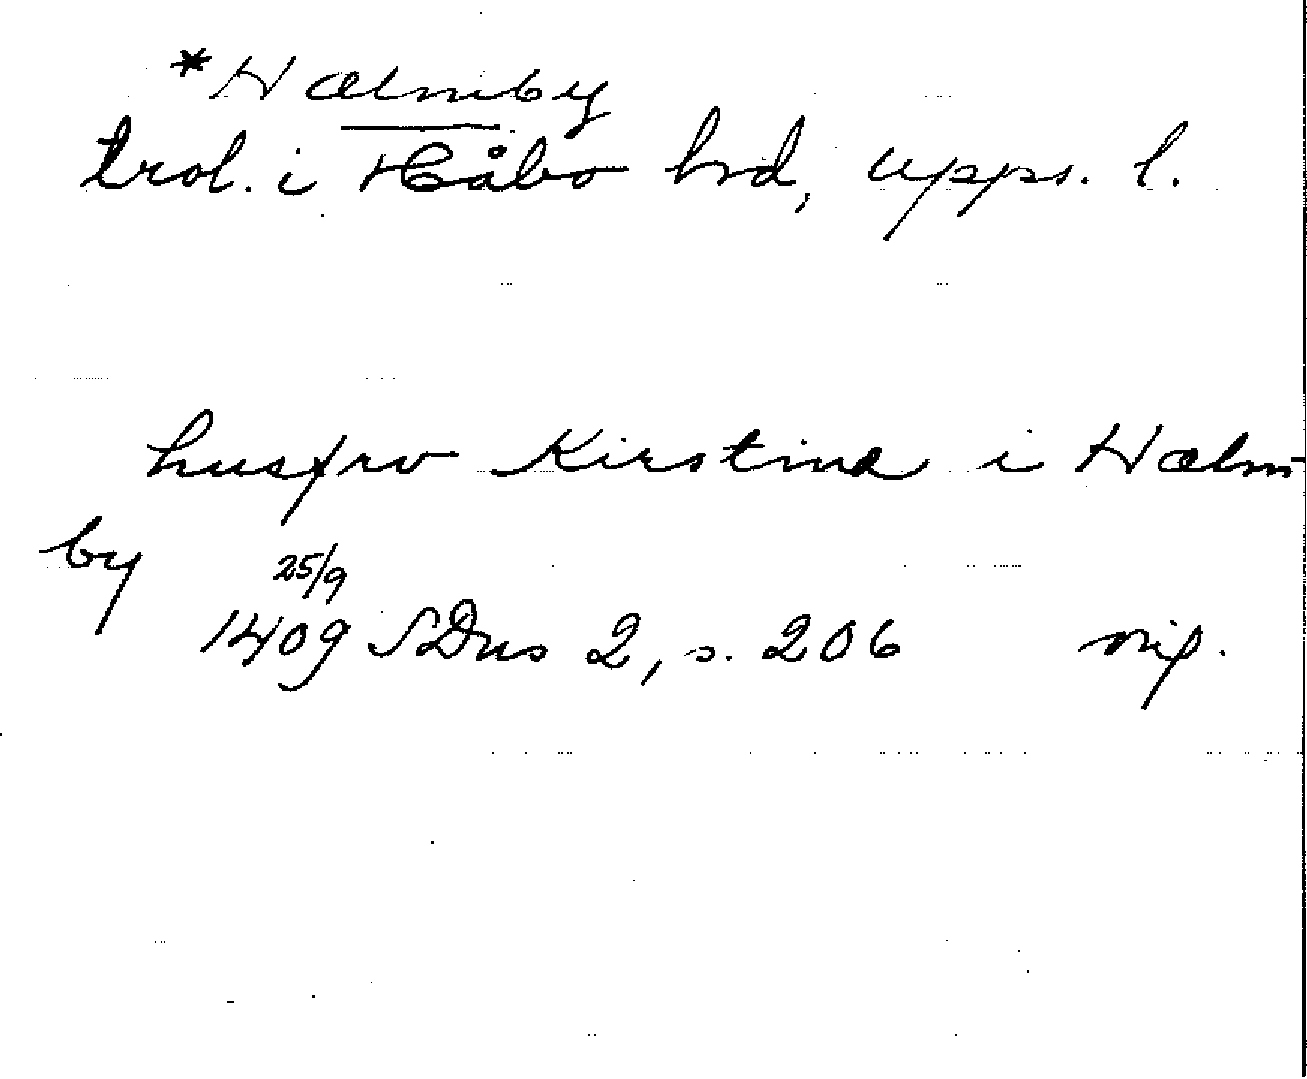 *Hælmby
trol. i Håbo hrd, Upps. l.
husfrv Kirstina i Hælm-
by
25/9
1409 SDns 2, s. 206 nip.